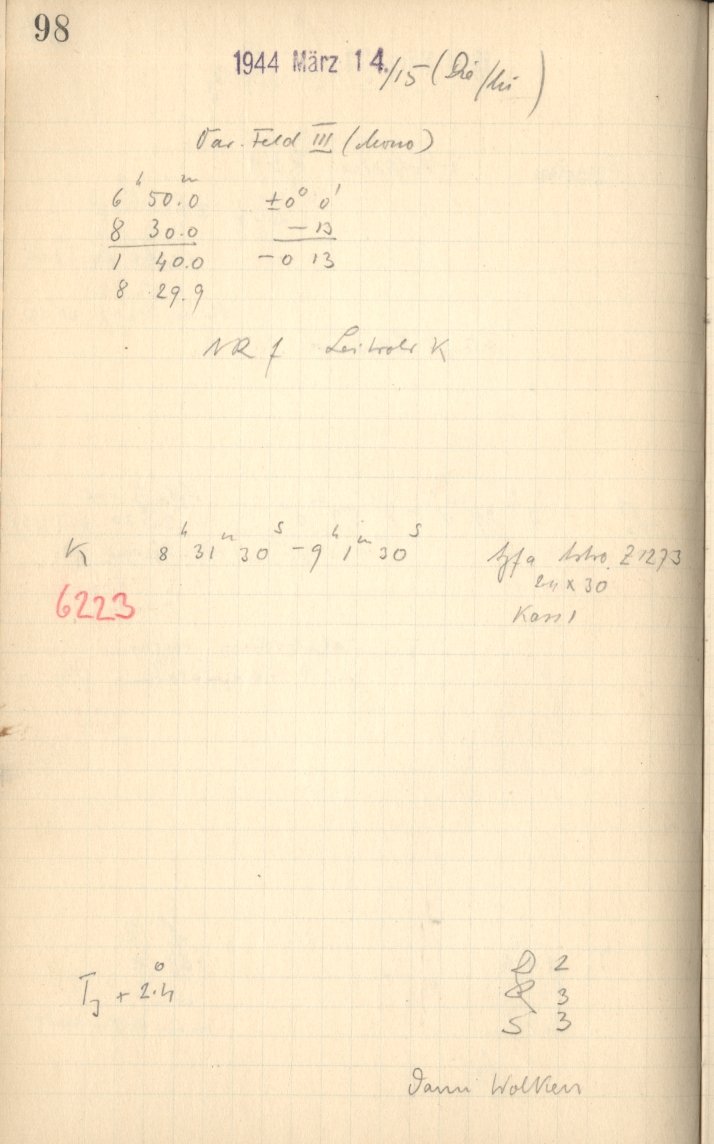 98
1944 März 14./15 (Di/Mi)
Var. Feld III (Mono)
6ʰ 50ᵐ.0 ±0° 0'
8 30.0 – 13
1 40.0 – 0 13
8 29.9
NR f Leitrohr K
K 8ʰ 31ᵐ 30ˢ – 9ʰ 1ᵐ 30ˢ Agfa Astro. Z1273
24 x 30
Kass 1
6223
+ 2°.4
2
3
S 3
Dann Wolken